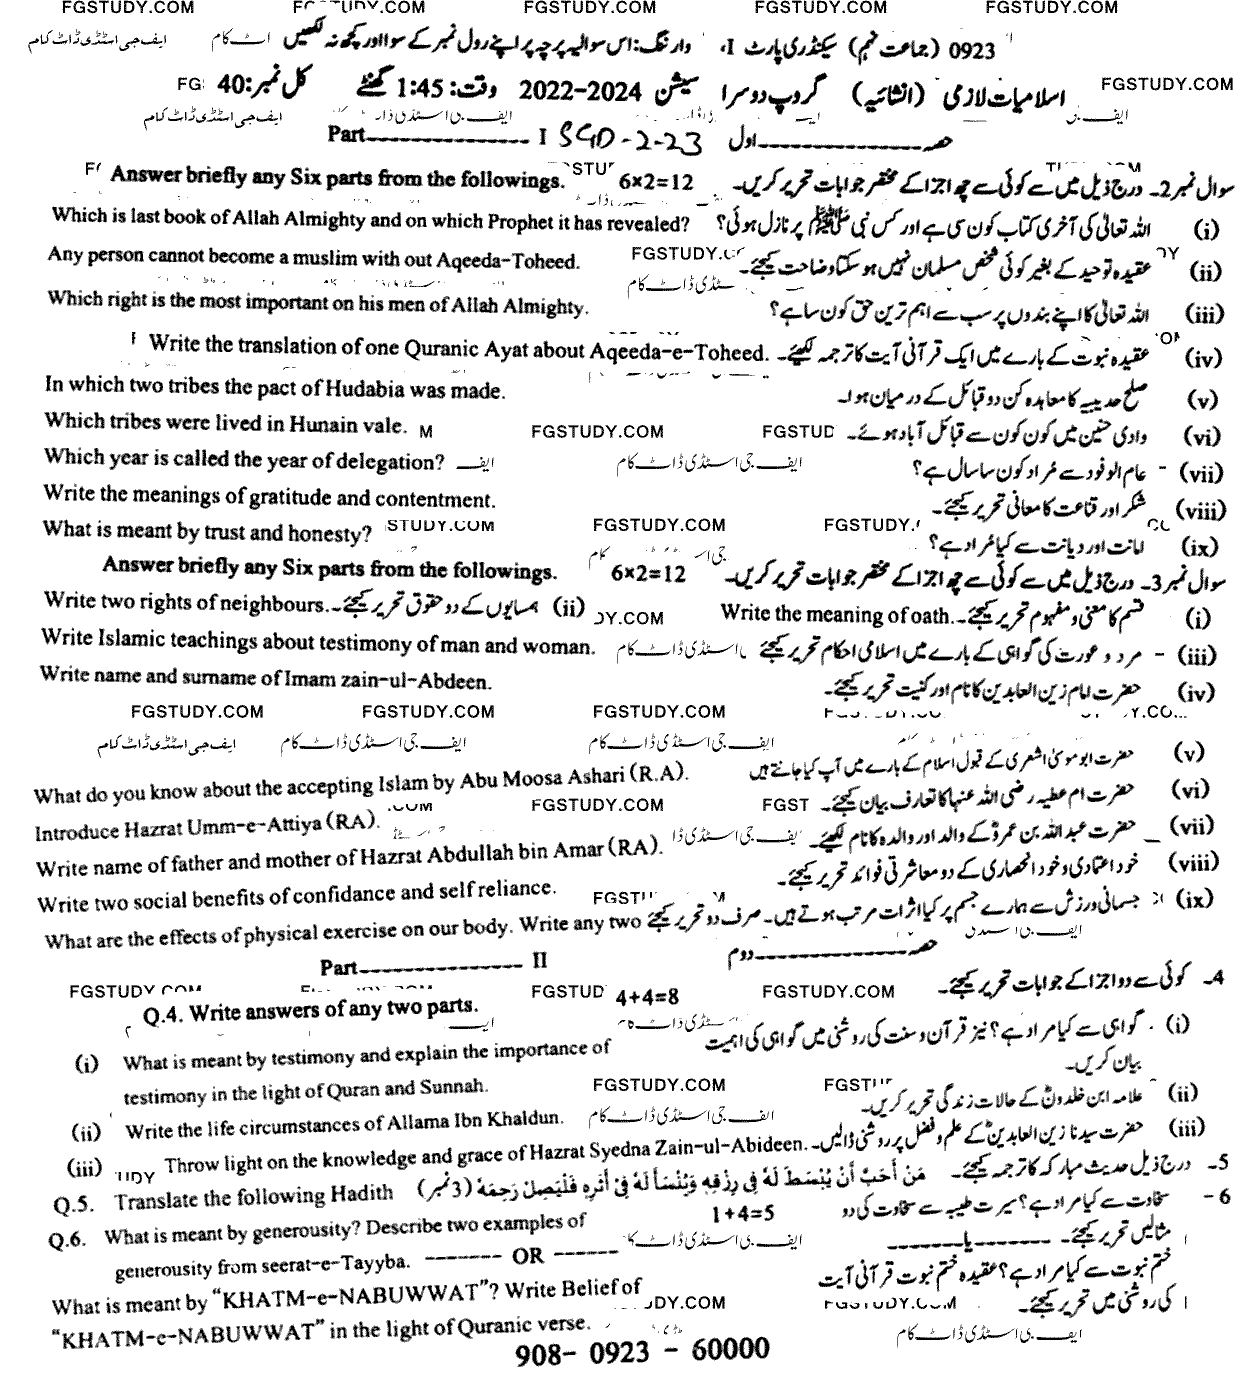 FGSTUDY.COM FGSTUDY.COM FGSTUDY.COM FGSTUDY.COM FGSTUDY.COM
0923 (جماعت نہم) سیکنڈری پارٹ I، وارننگ: اس سوالیہ پرچہ پر اپنے رول نمبر کے سوا اور کچھ نہ لکھیں ایف جی اسٹڈی ڈاٹ کام
اسلامیات لازمی (انشائیہ) گروپ دوسرا سیشن 2022-2024 وقت: 1:45 گھنٹے کل نمبر: 40 FGSTUDY.COM
ایف جی اسٹڈی ڈاٹ کام
Part I SGD-2-23 حصہ اول
Answer briefly any Six parts from the followings. 6×2=12 سوال نمبر 2۔ درج ذیل میں سے کوئی سے چھ اجزا کے مختصر جوابات تحریر کریں۔
Which is last book of Allah Almighty and on which Prophet it has revealed? اللہ تعالیٰ کی آخری کتاب کون سی ہے اور کس نبی ﷺ پر نازل ہوئی؟ (i)
Any person cannot become a muslim with out Aqeeda-Toheed. عقیدہ توحید کے بغیر کوئی شخص مسلمان نہیں ہو سکتا وضاحت کیجئے۔ (ii)
Which right is the most important on his men of Allah Almighty. اللہ تعالیٰ کا اپنے بندوں پر سب سے اہم ترین حق کون سا ہے؟ (iii)
Write the translation of one Quranic Ayat about Aqeeda-e-Toheed. عقیدہ نبوت کے بارے میں ایک قرآنی آیت کا ترجمہ لکھیئے۔ (iv)
In which two tribes the pact of Hudabia was made. صلح حدیبیہ کا معاہدہ کن دو قبائل کے درمیان ہوا۔ (v)
Which tribes were lived in Hunain vale. FGSTUDY.COM وادی حنین میں کون کون سے قبائل آباد ہوئے۔ (vi)
Which year is called the year of delegation? ایف جی اسٹڈی ڈاٹ کام عام الوفود سے مُراد کون سا سال ہے؟ (vii)
Write the meanings of gratitude and contentment. شکر اور قناعت کا معانی تحریر کیجئے۔ (viii)
What is meant by trust and honesty? FGSTUDY.COM امانت اور دیانت سے کیا مُراد ہے؟ (ix)
Answer briefly any Six parts from the followings. 6×2=12 سوال نمبر 3۔ درج ذیل میں سے کوئی سے چھ اجزا کے مختصر جوابات تحریر کریں۔
Write two rights of neighbours. ہمسایوں کے دو حقوق تحریر کیجئے۔ (ii) Write the meaning of oath. قسم کا معنی و مفہوم تحریر کیجئے۔ (i)
Write Islamic teachings about testimony of man and woman. مرد و عورت کی گواہی کے بارے میں اسلامی احکام تحریر کیجئے (iii)
Write name and surname of Imam zain-ul-Abdeen. حضرت امام زین العابدین کا نام اور کنیت تحریر کیجئے۔ (iv)
FGSTUDY.COM FGSTUDY.COM FGSTUDY.COM
ایف جی اسٹڈی ڈاٹ کام ایف جی اسٹڈی ڈاٹ کام ایف جی اسٹڈی ڈاٹ کام
What do you know about the accepting Islam by Abu Moosa Ashari (R.A). حضرت ابو موسیٰ اشعری کے قبول اسلام کے بارے میں آپ کیا جانتے ہیں (v)
Introduce Hazrat Umm-e-Attiya (RA). FGSTUDY.COM حضرت ام عطیہ رضی اللہ عنہا کا تعارف بیان کیجئے۔ (vi)
Write name of father and mother of Hazrat Abdullah bin Amar (RA). حضرت عبد اللہ بن عمروؓ کے والد اور والدہ کا نام لکھیئے۔ (vii)
Write two social benefits of confidance and self reliance. خود اعتمادی و خود انحصاری کے دو معاشرتی فوائد تحریر کیجئے۔ (viii)
What are the effects of physical exercise on our body. Write any two جسمانی ورزش سے ہمارے جسم پر کیا اثرات مرتب ہوتے ہیں۔ صرف دو تحریر کیجئے (ix)
Part II حصہ دوم
Q.4. Write answers of any two parts. 4+4=8 FGSTUDY.COM 4۔ کوئی سے دو اجزا کے جوابات تحریر کیجئے۔
(i) What is meant by testimony and explain the importance of گواہی سے کیا مراد ہے؟ نیز قرآن و سنت کی روشنی میں گواہی کی اہمیت (i)
testimony in the light of Quran and Sunnah. FGSTUDY.COM بیان کریں۔
(ii) Write the life circumstances of Allama Ibn Khaldun. ایف جی اسٹڈی ڈاٹ کام علامہ ابن خلدونؒ کے حالات زندگی تحریر کریں۔ (ii)
(iii) Throw light on the knowledge and grace of Hazrat Syedna Zain-ul-Abideen. حضرت سیدنا زین العابدینؒ کے علم و فضل پر روشنی ڈالیں۔ (iii)
Q.5. Translate the following Hadith (3 نمبر) مَنْ اَحَبَّ أَنْ يُبْسَطَ لَهُ فِي رِزْقِهِ وَيُنْسَأَ لَهُ فِي أَثَرِهِ فَلْيَصِلْ رَحِمَهُ 5۔ درج ذیل حدیث مبارکہ کا ترجمہ کیجئے۔
Q.6. What is meant by generousity? Describe two examples of 1+4=5 6۔ سخاوت سے کیا مراد ہے؟ سیرت طیبہ سے سخاوت کی دو
generousity from seerat-e-Tayyba. -------- OR ------ ایف جی اسٹڈی ڈاٹ کام مثالیں تحریر کیجئے۔ یا
What is meant by "KHATM-e-NABUWWAT"? Write Belief of ختم نبوت سے کیا مراد ہے؟ عقیدہ ختم نبوت قرآنی آیت
"KHATM-e-NABUWWAT" in the light of Quranic verse. کی روشنی میں تحریر کیجئے۔
ایف جی اسٹڈی ڈاٹ کام
908- 0923 - 60000